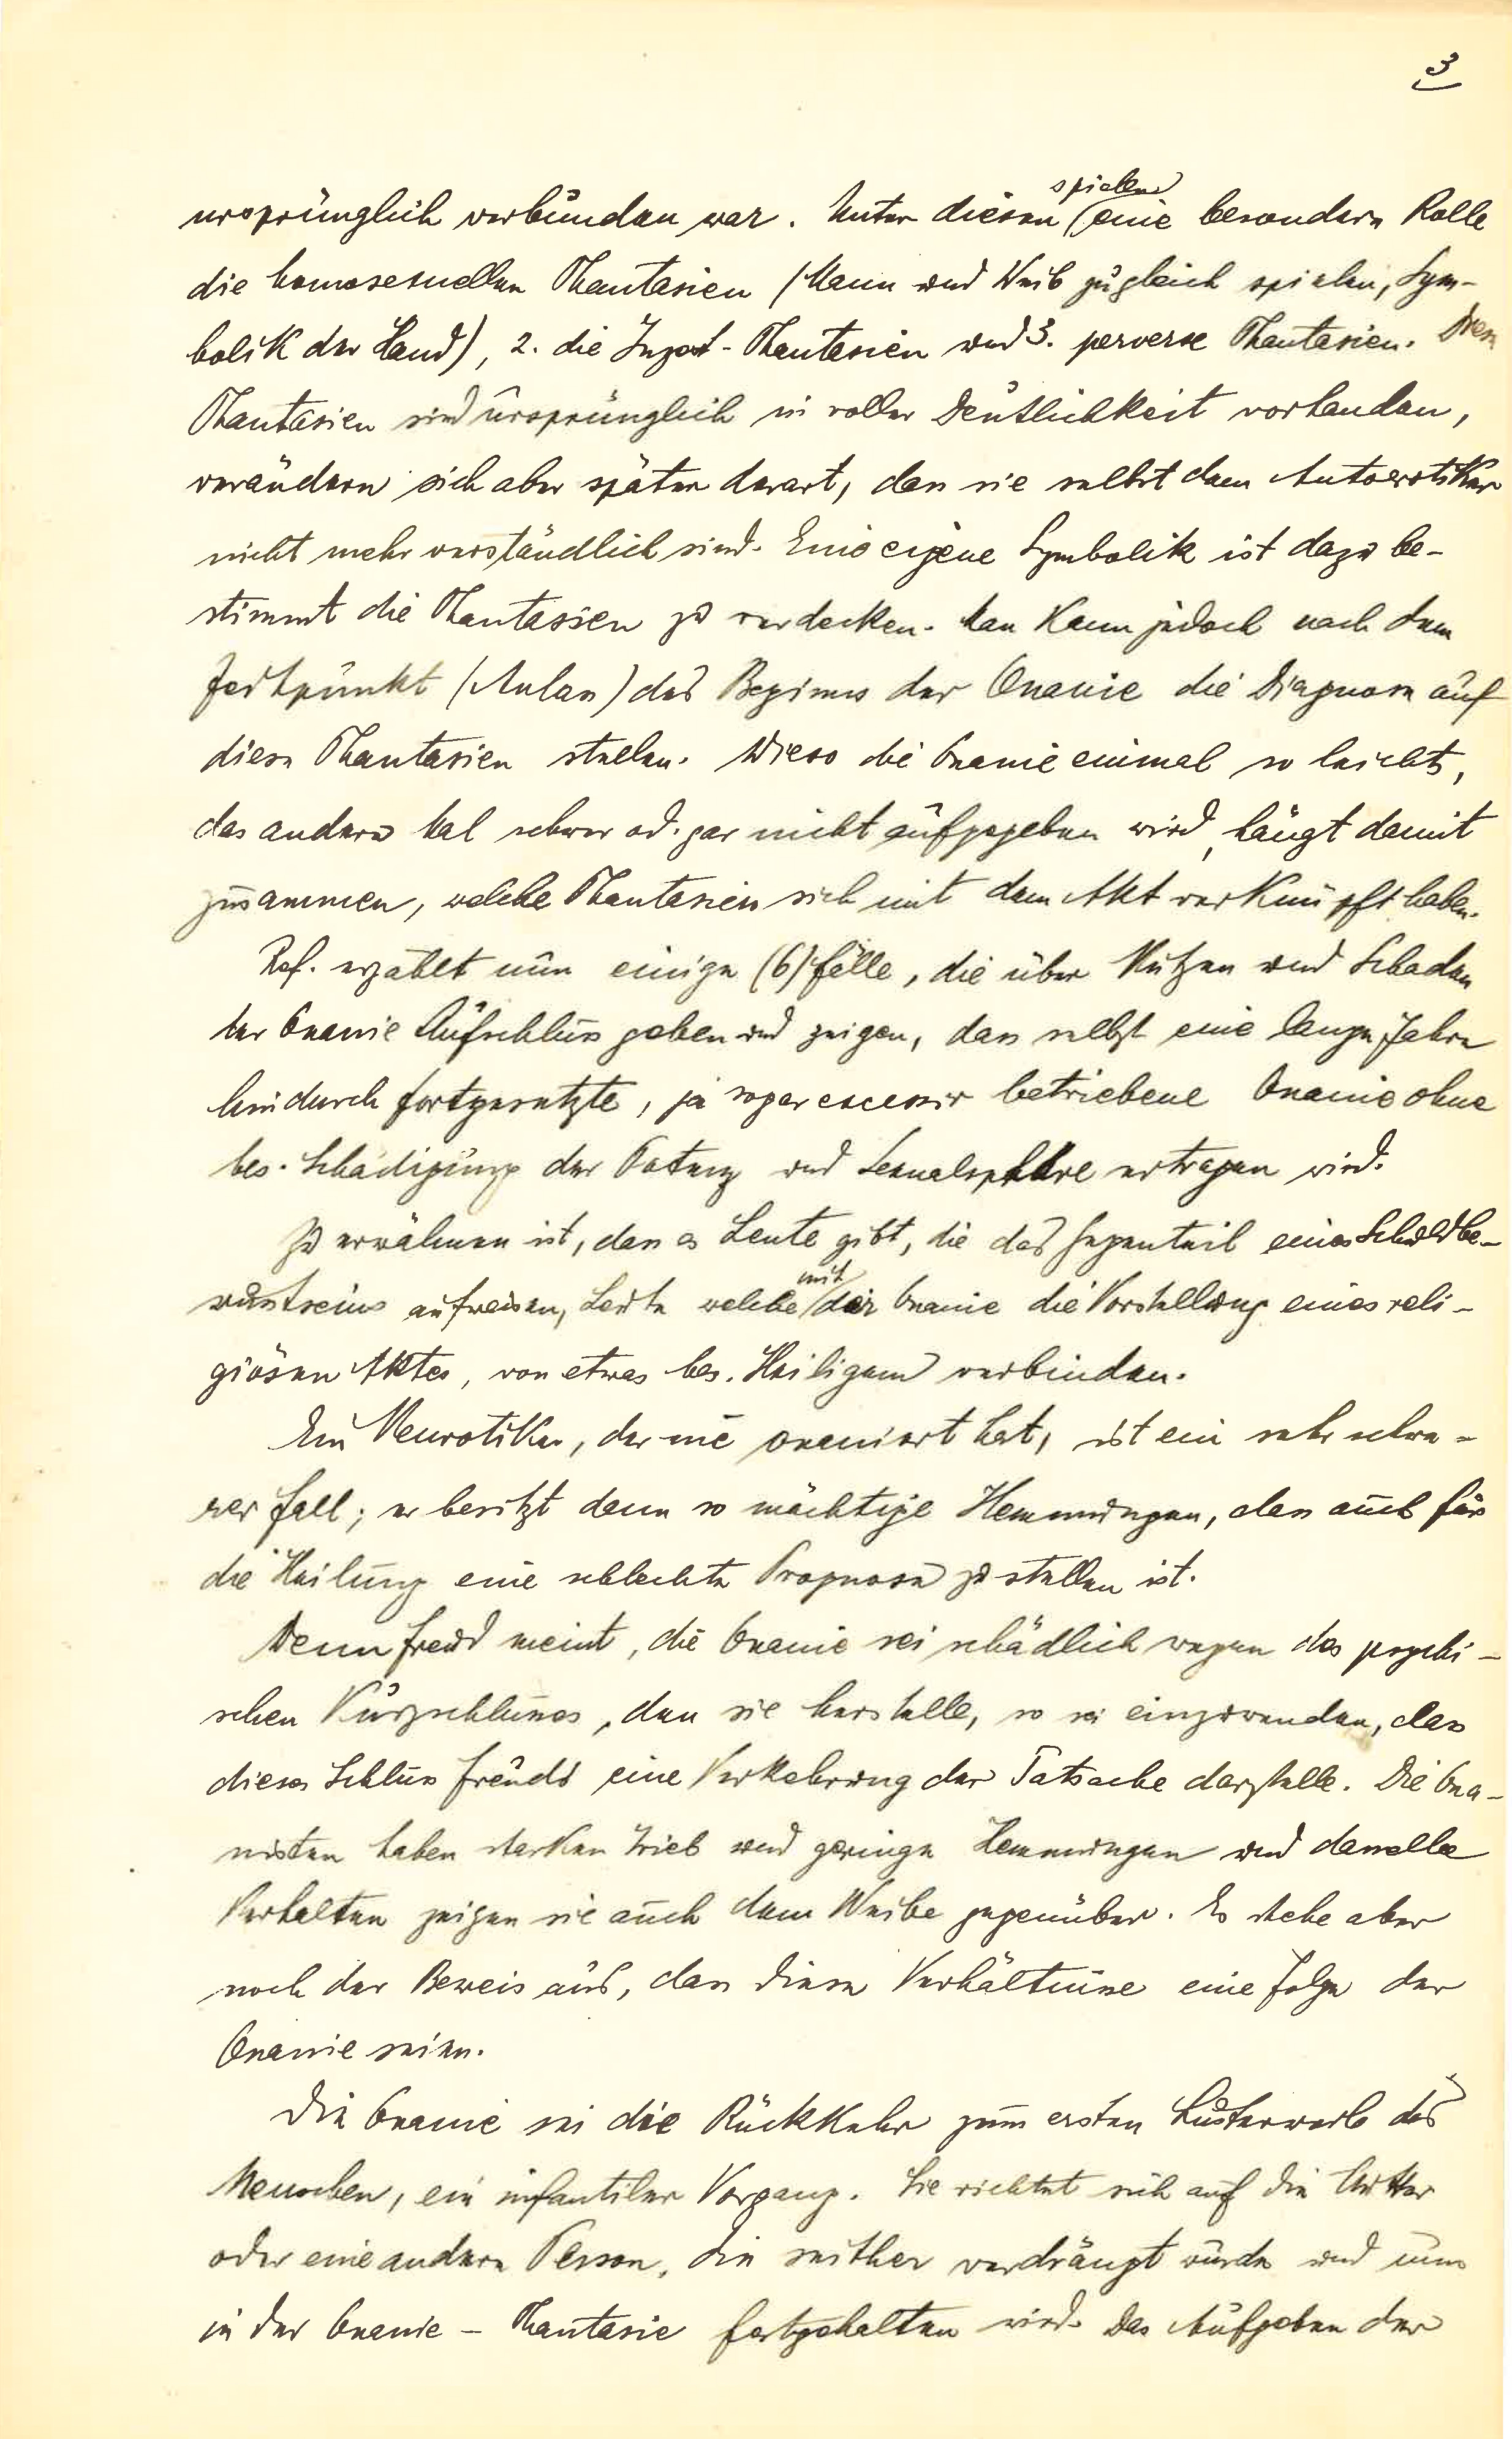 3
spielen
ursprünglich verbunden war. Unter diesen eine besondere Rolle
die homosexuellen Phantasien (Mann und Weib zugleich spielen, Sym-
bolik der Hand), 2. die Inzest-Phantasien und 3. perverse Phantasien. Diese
Phantasien sind ursprünglich in voller Deutlichkeit vorhanden,
verändern sich aber später derart, dass sie selbst dem Autoerotiker
nicht mehr verständlich sind. Eine eigene Symbolik ist dazu be-
stimmt die Phantasien zu verdecken. Man kann jedoch nach dem
Zeitpunkt (Anlass) des Beginnes der Onanie die Diagnose auf
diese Phantasien stellen. Wieso die Onanie einmal so leicht,
das andere Mal schwer od. gar nicht aufgegeben wird, hängt damit
zusammen, welche Phantasien sich mit dem Akt verknüpft haben.
Ref. erzählt nun einige (6) Fälle, die über Nutzen und Schaden
der Onanie Aufschluss geben und zeigen, dass selbst eine lange Jahre
hindurch fortgesetzte, ja sogar excessiv betriebene Onanie ohne
bes. Schädigung der Potenz und Sexualsphäre ertragen wird.
Zu erwähnen ist, dass es Leute gibt, die das Gegenteil eines Schuldbe-
mit
wusstseins aufweisen, Leute welche der Onanie die Vorstellung eines reli-
giösen Aktes, von etwas bes. Heiligem verbinden.
Ein Neurotiker, der nie onaniert hat, ist ein sehr schwe-
rer Fall; er besitzt dann so mächtige Hemmungen, dass auch für
die Heilung eine schlechte Prognose zu stellen ist.
Wenn Freud meint, die Onanie sei schädlich wegen des psychi-
schen Kurzschlusses, den sie herstelle, so sei einzuwenden, dass
dieser Schluss Freuds eine Verkehrung der Tatsache darstelle. Die Ona-
nisten haben starken Trieb und geringe Hemmungen und dasselbe
Verhalten zeigen sie auch dem Weibe gegenüber. Es stehe aber
noch der Beweis aus, dass diese Verhältnisse eine Folge der
Onanie seien.
Die Onanie sei die Rückkehr zum ersten Lusterwerb des
Menschen, ein infantiler Vorgang. Sie richtet sich auf die Mutter
oder eine andere Person, die seither verdrängt wurde und nun
in der Onanie-Phantasie festgehalten wird. Das Aufgeben der